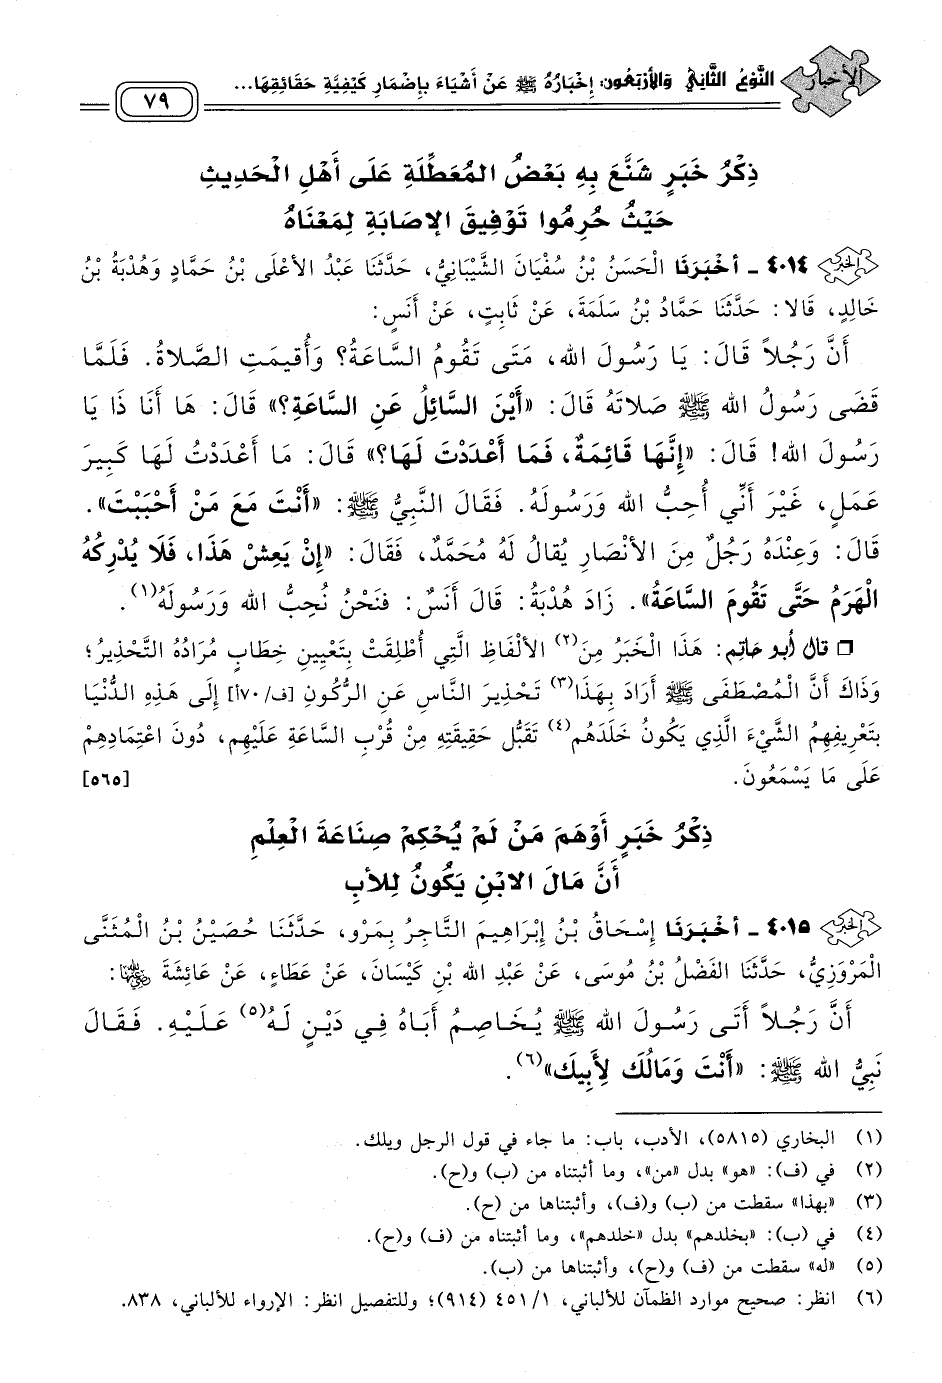 الأخبار النَّوْعُ الثَّانِي وَالأَرْبَعُونَ: إِخْبَارُهُ ﷺ عَنْ أَشْيَاءَ بِإِضْمَارِ كَيْفِيَّةِ حَقَائِقِهَا...
٧٩
ذِكْرُ خَبَرٍ شَنَّعَ بِهِ بَعْضُ المُعَطِّلَةِ عَلَى أَهْلِ الْحَدِيثِ
حَيْثُ حُرِمُوا تَوْفِيقَ الإصَابَةِ لِمَعْنَاهُ
٤٠١٤ - أَخْبَرَنَا الْحَسَنُ بْنُ سُفْيَانَ الشَّيْبَانِيُّ، حَدَّثَنَا عَبْدُ الأَعْلَى بْنُ حَمَّادٍ وَهُدْبَةُ بْنُ
خَالِدٍ، قَالا: حَدَّثَنَا حَمَّادُ بْنُ سَلَمَةَ، عَنْ ثَابِتٍ، عَنْ أَنَسٍ:
أَنَّ رَجُلاً قَالَ: يَا رَسُولَ الله، مَتَى تَقُومُ السَّاعَةُ؟ وَأُقِيمَتِ الصَّلاةُ. فَلَمَّا
قَضَى رَسُولُ الله ﷺ صَلاتَهُ قَالَ: «أَيْنَ السَّائِلُ عَنِ السَّاعَةِ؟» قَالَ: هَا أَنَا ذَا يَا
رَسُولَ الله! قَالَ: «إِنَّهَا قَائِمَةٌ، فَمَا أَعْدَدْتَ لَهَا؟» قَالَ: مَا أَعْدَدْتُ لَهَا كَبِيرَ
عَمَلٍ، غَيْرَ أَنِّي أُحِبُّ الله وَرَسُولَهُ. فَقَالَ النَّبِيُّ ﷺ: «أَنْتَ مَعَ مَنْ أَحْبَبْتَ».
قَالَ: وَعِنْدَهُ رَجُلٌ مِنَ الأَنْصَارِ يُقَالُ لَهُ مُحَمَّدٌ، فَقَالَ: «إِنْ يَعِشْ هَذَا، فَلَا يُدْرِكُهُ
الْهَرَمُ حَتَّى تَقُومَ السَّاعَةُ». زَادَ هُدْبَةُ: قَالَ أَنَسٌ: فَنَحْنُ نُحِبُّ الله وَرَسُولَهُ(١).
❑ قَالَ أَبُو حَاتِمٍ: هَذَا الْخَبَرُ مِنَ(٢) الأَلْفَاظِ الَّتِي أُطْلِقَتْ بِتَعْيِينِ خِطَابٍ مُرَادُهُ التَّحْذِيرُ؛
وَذَاكَ أَنَّ الْمُصْطَفَى ﷺ أَرَادَ بِهَذَا(٣) تَحْذِيرَ النَّاسِ عَنِ الرُّكُونِ [ف/٧٠أ] إِلَى هَذِهِ الدُّنْيَا
بِتَعْرِيفِهِمُ الشَّيْءَ الَّذِي يَكُونُ خَلَدَهُم(٤) تَقَبُّل حَقِيقَتِهِ مِنْ قُرْبِ السَّاعَةِ عَلَيْهِم، دُونَ اعْتِمَادِهِمْ
عَلَى مَا يَسْمَعُونَ. [٥٦٥]
ذِكْرُ خَبَرٍ أَوْهَمَ مَنْ لَمْ يُحْكِمْ صِنَاعَةَ الْعِلْمِ
أَنَّ مَالَ الابْنِ يَكُونُ لِلأَبِ
٤٠١٥ - أَخْبَرَنَا إِسْحَاقُ بْنُ إِبْرَاهِيمَ التَّاجِرُ بِمَرْو، حَدَّثَنَا حُصَيْنُ بْنُ الْمُثَنَّى
الْمَرْوَزِيُّ، حَدَّثَنَا الفَضْلُ بْنُ مُوسَى، عَنْ عَبْدِ الله بْنِ كَيْسَانَ، عَنْ عَطَاءٍ، عَنْ عَائِشَةَ رضي الله عنها:
أَنَّ رَجُلاً أَتَى رَسُولَ الله ﷺ يُخَاصِمُ أَبَاهُ فِي دَيْنٍ لَهُ(٥) عَلَيْهِ. فَقَالَ
نَبِيُّ الله ﷺ: «أَنْتَ وَمَالُكَ لِأَبِيكَ»(٦).
(١) البخاري (٥٨١٥)، الأدب، باب: ما جاء في قول الرجل ويلك.
(٢) في (ف): «هو» بدل «من»، وما أثبتناه من (ب) و(ح).
(٣) «بهذا» سقطت من (ب) و(ف)، وأثبتناها من (ح).
(٤) في (ب): «بخلدهم» بدل «خلدهم»، وما أثبتناه من (ف) و(ح).
(٥) «له» سقطت من (ف) و(ح)، وأثبتناها من (ب).
(٦) انظر: صحيح موارد الظمآن للألباني، ٤٥١/١ (٩١٤)؛ وللتفصيل انظر: الإرواء للألباني، ٨٣٨.